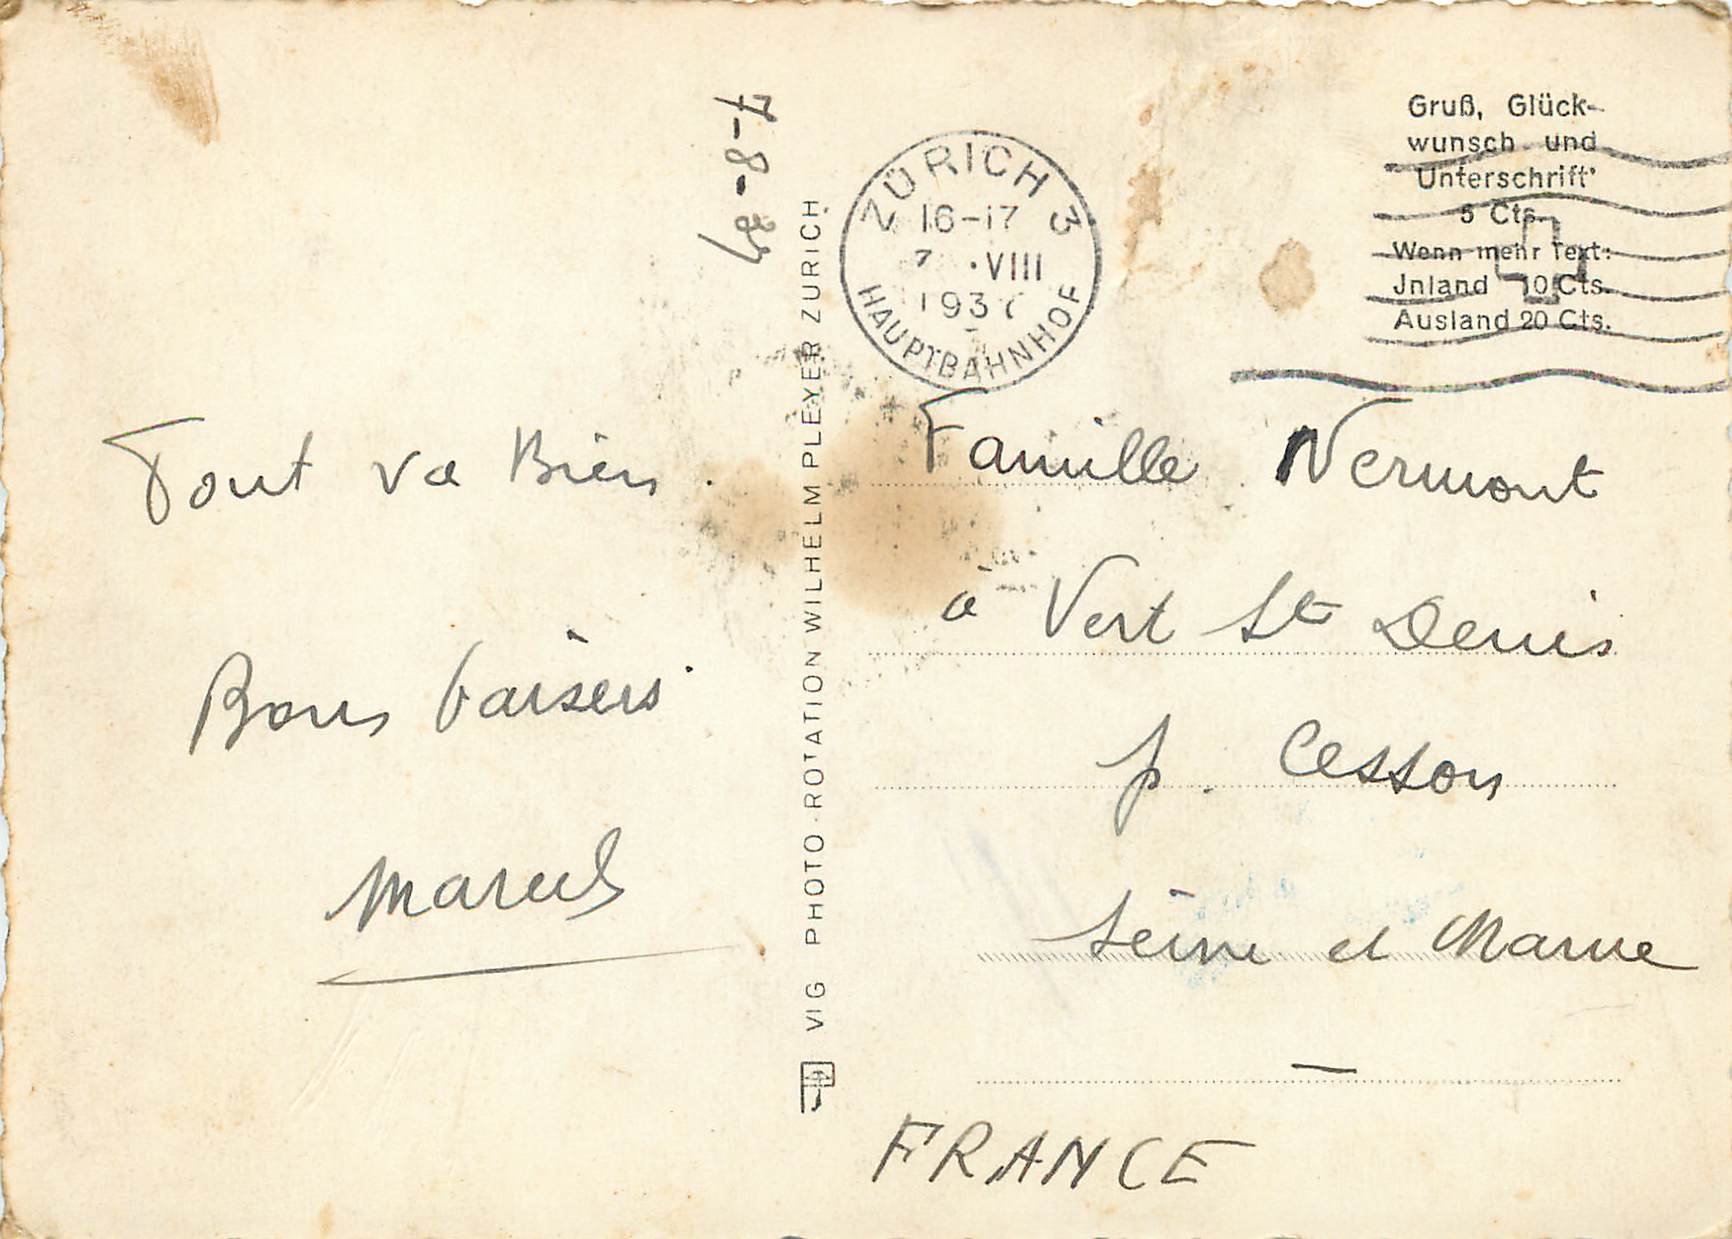 Tout va Bien.
Bons baisers
Marcel
7-8-37
VIG PHOTO-ROTATION WILHELM PLEYER ZÜRICH
ZÜRICH 3
16-17
7.VIII
1937
HAUPTBAHNHOF
Gruß, Glück-
wunsch und
Unterschrift
5 Cts.
Wenn mehr Text:
Jnland 10 Cts.
Ausland 20 Cts.
Famille Nermont
à Vert St Denis
p. Cesson
Seine et Marne
FRANCE